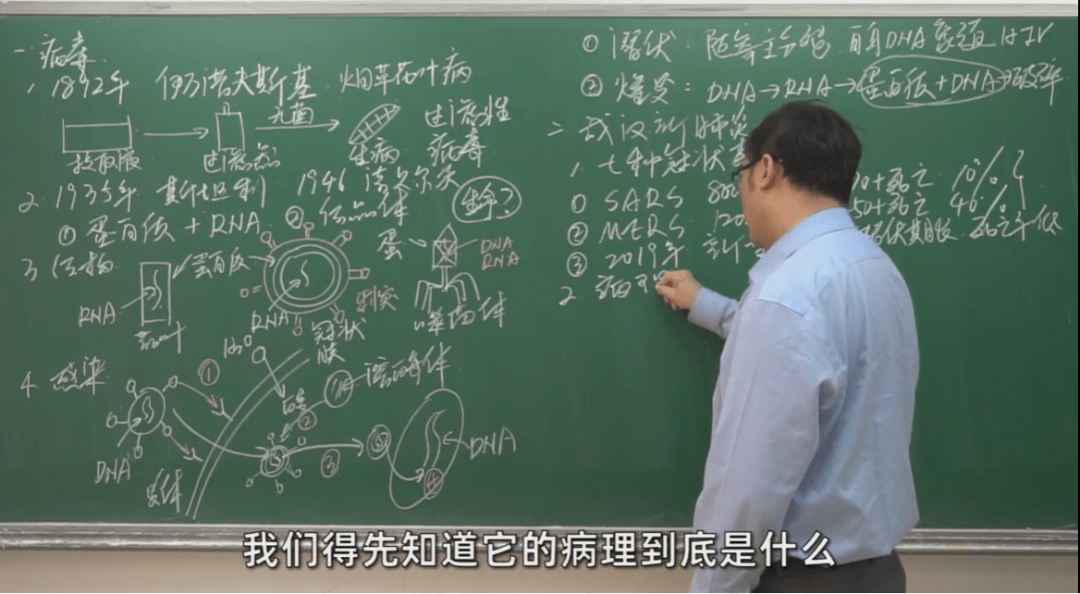 一. 病毒
1. 1892年 伊万诺夫斯基 烟草花叶病
无菌
提取液 过滤器 生病 过滤性病毒
2. 1935年 斯坦利 1946 诺贝尔奖
① 蛋白质 + RNA ② 结晶体
3. 结构
蛋白质
RNA
RNA
冠状
刺突
蛋
DNA
RNA
噬菌体
4. 感染
①
②
③
溶酶体
DNA
受体
DNA
① 潜伏: 随宿主分裂 HIV
② 爆发: DNA→RNA→蛋白质+DNA→破碎
二. 武汉新肺炎
1. 七种冠状
① SARS 10%
② MERS
③ 2019年 潜伏期长 死亡率低
2. 病
我们得先知道它的病理到底是什么